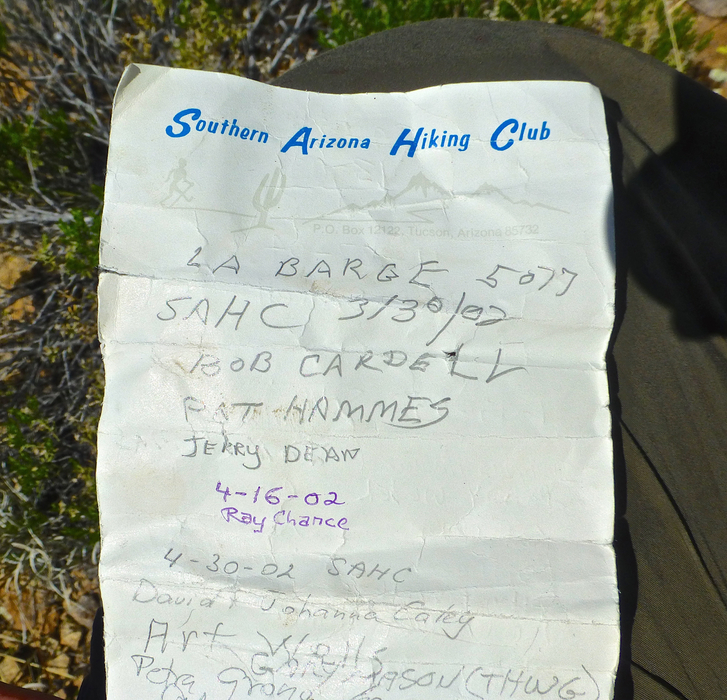 Southern Arizona Hiking Club
P.O. Box 12122, Tucson, Arizona 85732
LA BARGE 5077
SAHC 3/30/02
BOB CARDELL
PAT HAMMES
JERRY DEAN
4-16-02
Ray Chance
4-30-02 SAHC
David & Johanna Caley
Art Wolls
MASON (THWG)
Pete